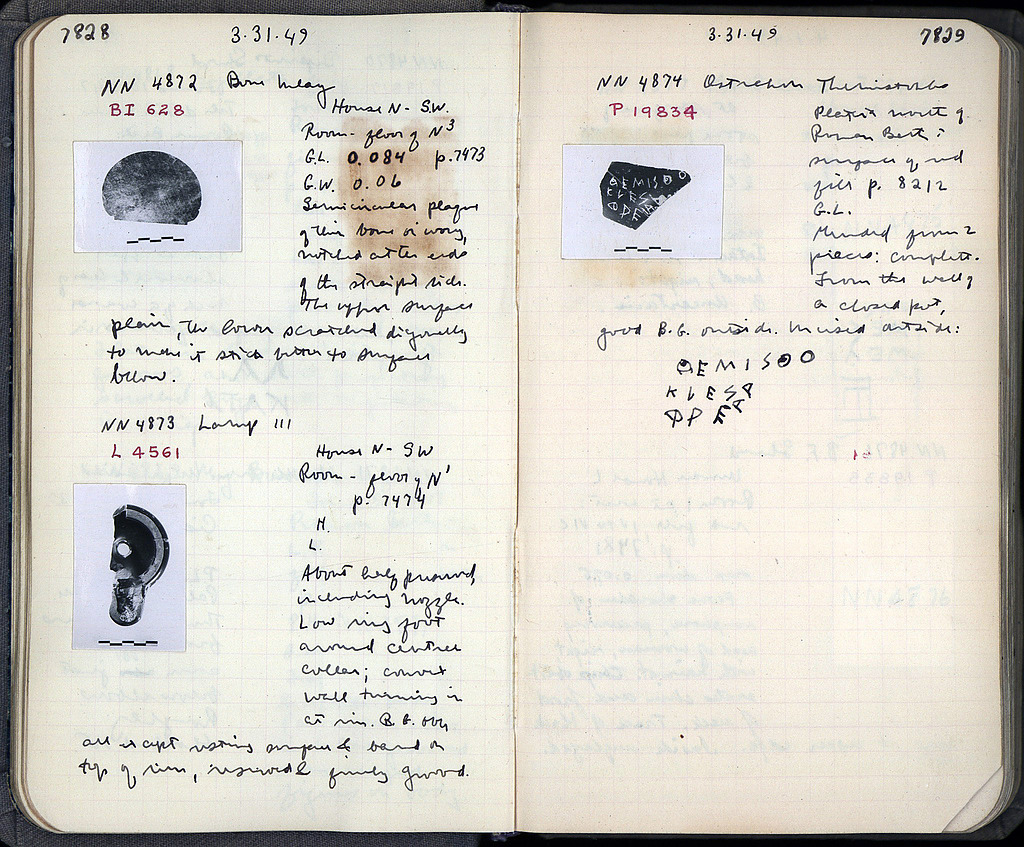 7828
3·31·49
NN 4872 Bone Inlay
BI 628
House N - S.W.
Room - floor of N³
G.L. 0.084 p.7473
G.W. 0.06
Semicircular plaque
of thin bone or ivory,
notched at the ends
of the straight side.
The upper surface
plain, the lower scratched diagonally
to make it stick better to surface
below.
NN 4873 Lamp III
L 4561
House N - SW
Room - floor of N'
p. 7474
H.
L.
About half preserved,
including nozzle.
Low ring foot
around central
collar; convex
wall turning in
at rim. B.G. all
all except resting surface & band on
top of rim, reserved & finely grooved.
3·31·49
7829
NN 4874 Ostrakon Themistokles
P 19834
Plateia north of
Roman Bath:
surface of red
fill p. 8212
G.L.
Mended from 2
pieces: complete.
From the wall of
a closed pot,
good B.G. outside. Incised outside:
ΘEMISΘO
KLES
ΘEMISΘO
KLES